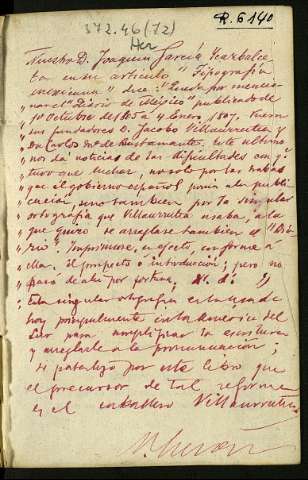 R. 6140
372.46(72)
Her
Nuestro D. Joaquin García Icazbalce
ta en su artículo "Tipografía
mexicana" dice: "Queda por mencio
nar el "Diario de México" publicado de
1º Octubre de 1805 a 4 Enero 1807. Fueron
sus fundadores D. Jacobo Villaurrutia y
Don Carlos Mª de Bustamante; este último
nos da noticias de las dificultades con q
tuvo que luchar, no solo por las trabas
que el gobierno español ponía a la publi
cación, sino también por la singular
ortografía que Villaurrutia usaba, a la
que quiso se arreglase también el "Dia
rio". Imprimióse, en efecto, conforme a
ella. El prospecto o introducción; pero no
pasó de ahí por fortuna.
Esta singular ortografía es la usada
hoy principalmente en la América del
Sur para simplificar la escritura
y arreglarla a la pronunciación;
y se patentiza por este libro que
el precursor de tal reforma
es el caballero Villaurrutia